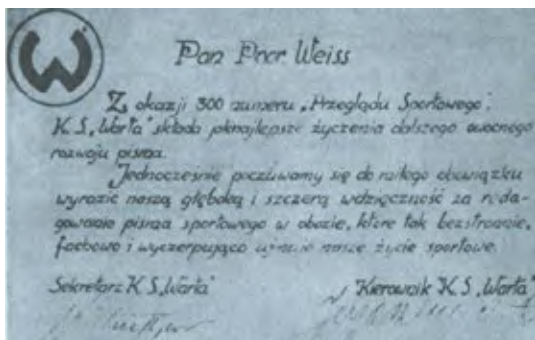 W
Pan Ppor Weiss
Z okazji 300 numeru „Przeglądu Sportowego",
K.S. „Warta" składa jaknajlepsze życzenia dalszego owocnego
rozwoju pisma.
Jednocześnie poczuwamy się do miłego obowiązku
wyrazić naszą głęboką i szczerą wdzięczność za reda-
gowanie pisma sportowego w obozie, które tak bezstronnie,
fachowo i wyczerpująco ujmuje nasze życie sportowe.
Sekretarz K.S. „Warta"
Kierownik K.S. „Warta"